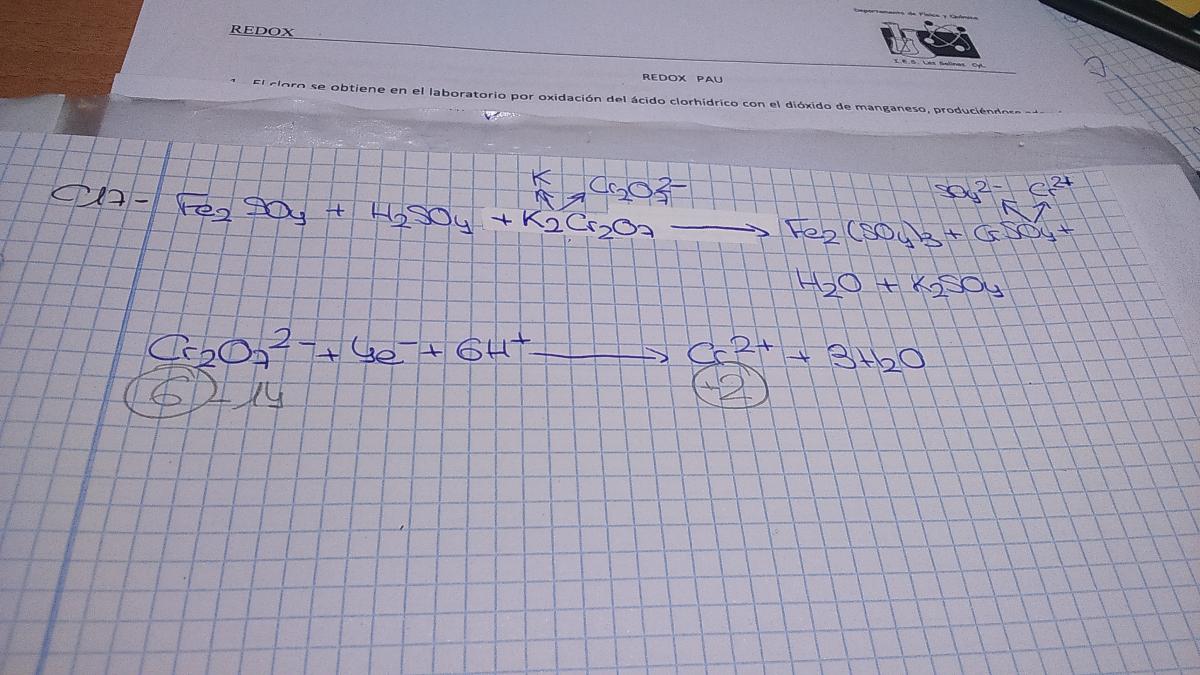 Departamento de Física y Química
REDOX
I.E.S. Las Salinas
REDOX PAU
1. El cloro se obtiene en el laboratorio por oxidación del ácido clorhídrico con el dióxido de manganeso, produciéndose
K Cr2O7^2- SO4^2- Cr^2+
C17- Fe2 SO4 + H2SO4 + K2Cr2O7 → Fe2(SO4)3 + CrSO4+
H2O + K2SO4
Cr2O7^2- + 4e^- + 6H^+ → Cr^2+ + 3H2O
6 - 14 +2